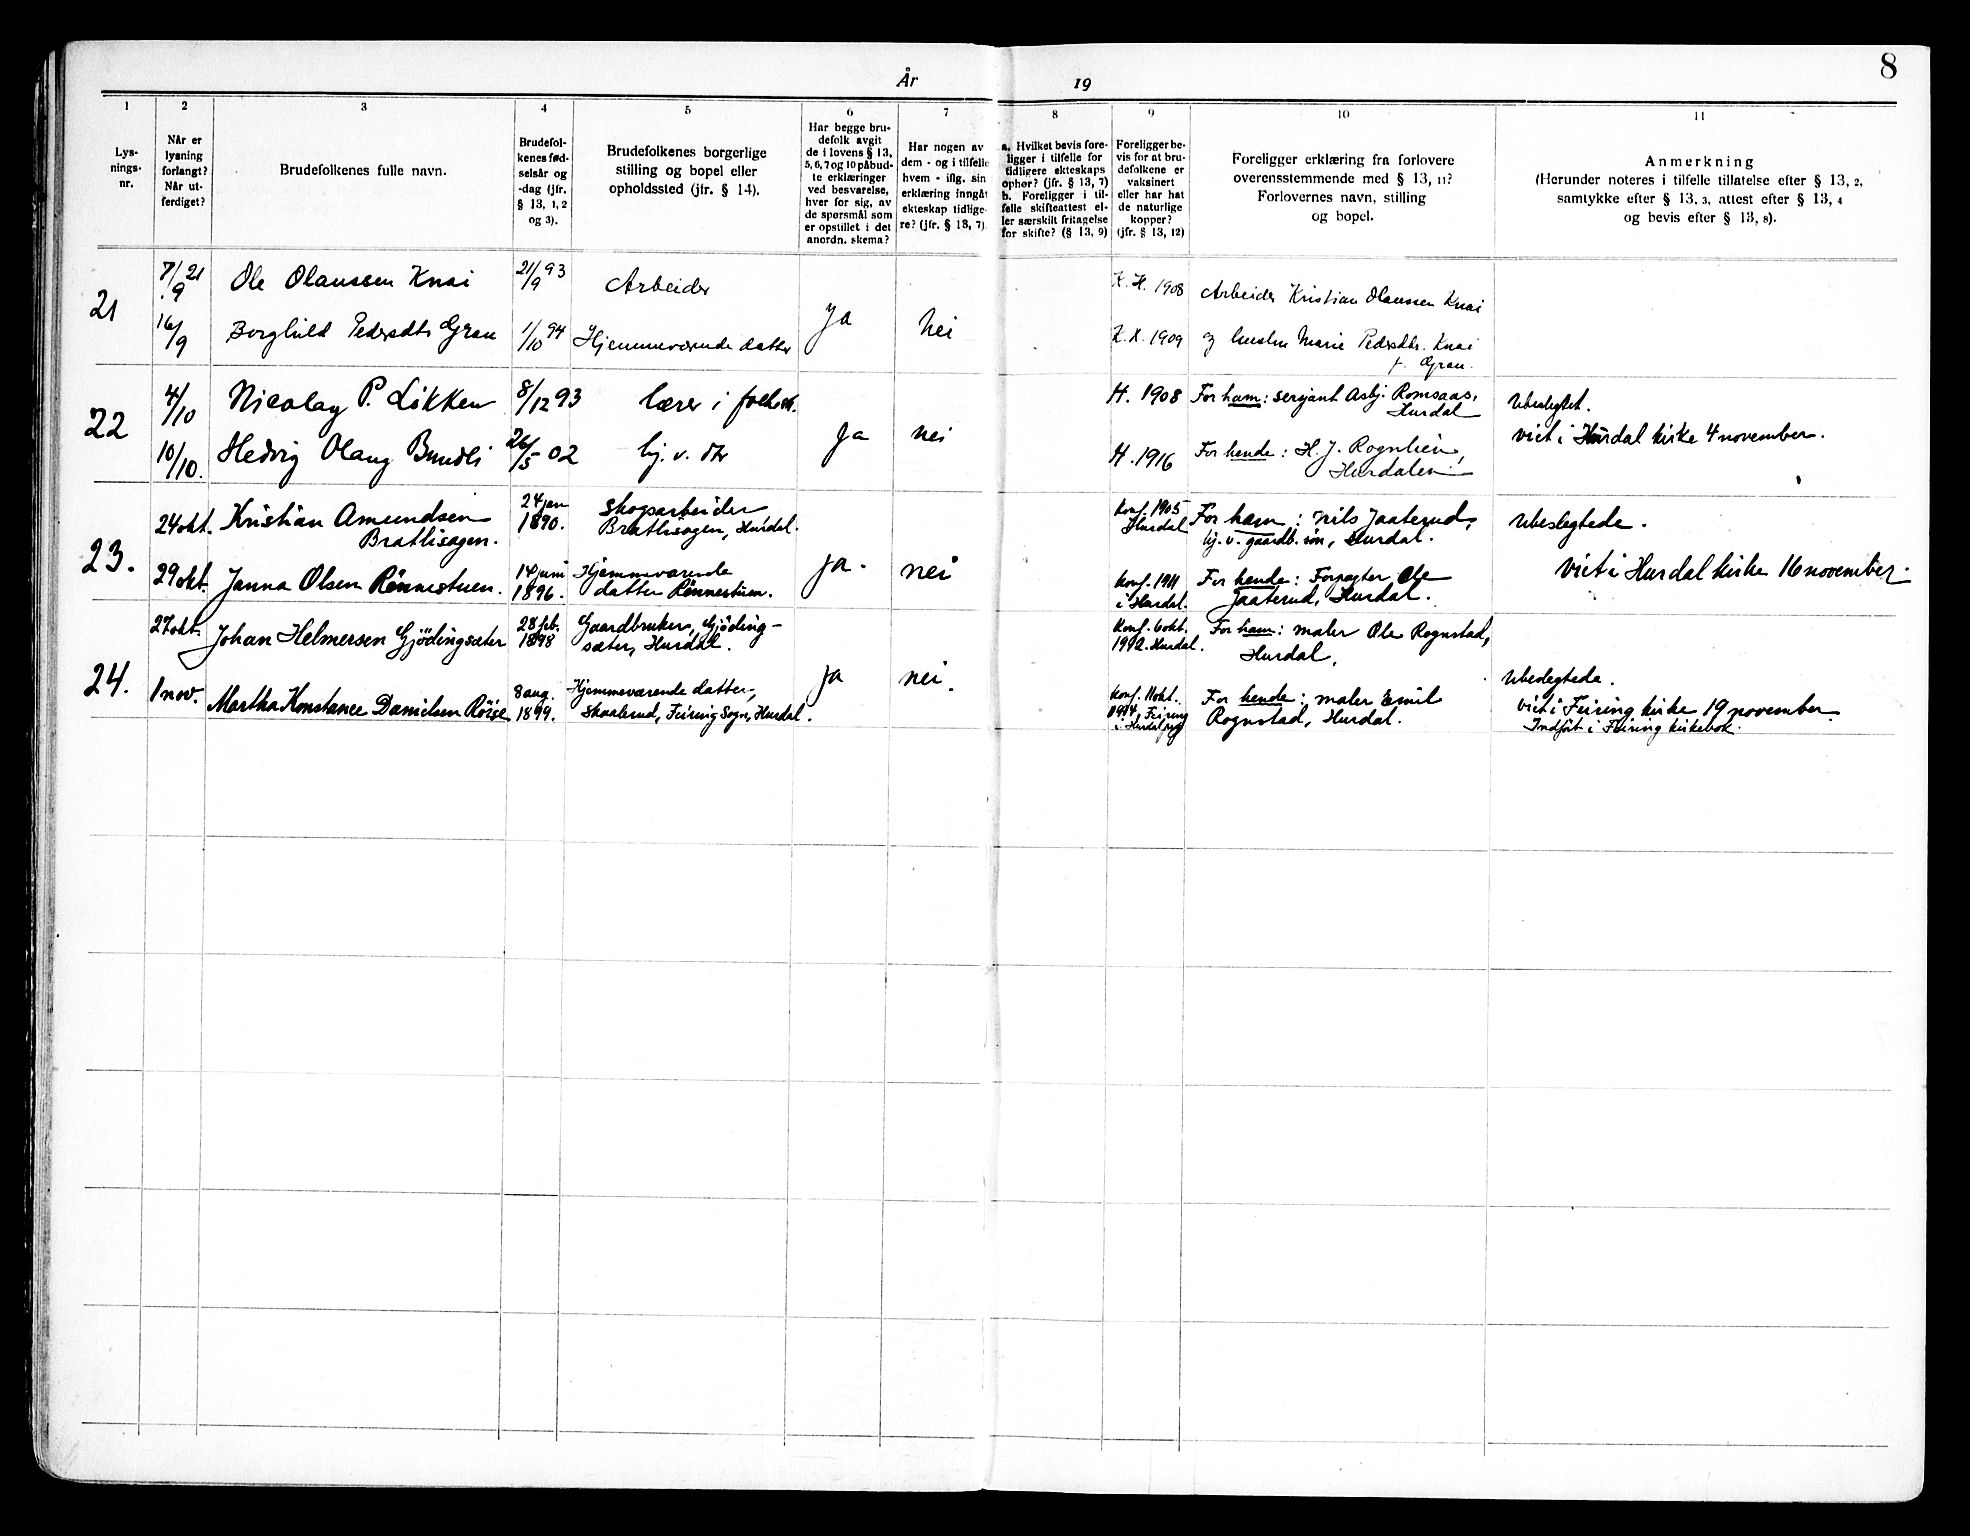 8
År 19
1
Lys-
nings-
nr.
2
Når er
lysning
forlangt?
Når ut-
ferdiget?
3
Brudefolkenes fulle navn.
4
Brudefol-
kenes fød-
selsår og
-dag (jfr.
§ 13, 1, 2
og 3).
5
Brudefolkenes borgerlige
stilling og bopel eller
opholdssted (jfr. § 14).
6
Har begge bru-
defolk avgit
de i lovens § 13,
5, 6, 7 og 10 påbud-
te erklæringer
ved besvarelse,
hver for sig, av
de spørsmål som
er opstillet i det
anordn. skema?
7
Har nogen av
dem - og i tilfelle
hvem - iflg. sin
erklæring inngått
ekteskap tidlige-
re? (jfr. § 13, 7)
8
a. Hvilket bevis fore-
ligger i tilfelle for
tidligere ekteskaps
ophør? (jfr. § 13, 7)
b. Foreligger i til-
felle skifteattest el-
ler særskilt fritagelse
for skifte? (§ 13, 9)
9
Foreligger be-
vis for at bru-
defolkene er
vaksinert
eller har hat
de naturlige
kopper?
(jfr. § 13, 12)
10
Foreligger erklæring fra forlovere
overensstemmende med § 13, 11?
Forlovernes navn, stilling
og bopel.
11
Anmerkning
(Herunder noteres i tilfelle tillatelse efter § 13, 2,
samtykke efter § 13, 3, attest efter § 13, 4
og bevis efter § 13, 8).
21
7/9 21
Ole Olaussen Knai
21/9 93
Arbeider
Ja
nei
K. H. 1908
Arbeider Kristian Olaussen Knai
16/9
Borghild Pedersdtr Gran
1/10 94
Hjemmeværende datter
K. H. 1909
og hustru Marie Pedersdtr. Knai
f. Gran.
22
4/10
Nicolay P. Løkken
8/12 93
lærer i folkesk.
Ja
nei
H. 1908
For ham: sersjant Asbj. Romsaas,
Hurdal
Ubeslegtet.
viet i Hurdal kirke 4 november.
10/10.
Hedvig Olaug Bundli
26/5 02
hj. v. dtr
H. 1916
For hende: H. J. Rognlien,
Hurdalen
23.
24 okt.
Kristian Amundsen
Brattlisagen.
24 jan
1890.
Skogsarbeider
Brattlisagen, Hurdal.
Ja.
nei
Konf. 1905
Hurdal
For ham: Nils Jaaterud,
hj. v. gaardb. søn, Hurdal.
Ubeslegtede.
Viet i Hurdal kirke 16 november.
29 okt.
Janna Olsen Rønnestuen.
14 juni
1896.
Hjemmeværende
datter Rønnestuen.
Konf. 1911
i Hurdal.
For hende: Forpagter, Ole
Jaaterud, Hurdal.
24.
27 okt.
Johan Helmersen Gjødingsæter
28 feb.
1898
Gaardbruker, Gjøding-
sæter, Hurdal.
Ja
nei.
Konf. 6 okt.
1912. Hurdal.
For ham: maler Ole Rognstad,
Hurdal.
1 nov.
Martha Konstance Danielsen Røise
8 aug.
1899.
Hjemmeværende datter,
Skaalerud, Feiring Sogn, Hurdal.
Konf. 11 okt.
1914, Feiring
i Hurdal prg
For hende: maler Emil
Rognstad, Hurdal.
Ubeslegtede.
viet i Feiring kirke 19 november.
Indført i Feiring kirkebok.